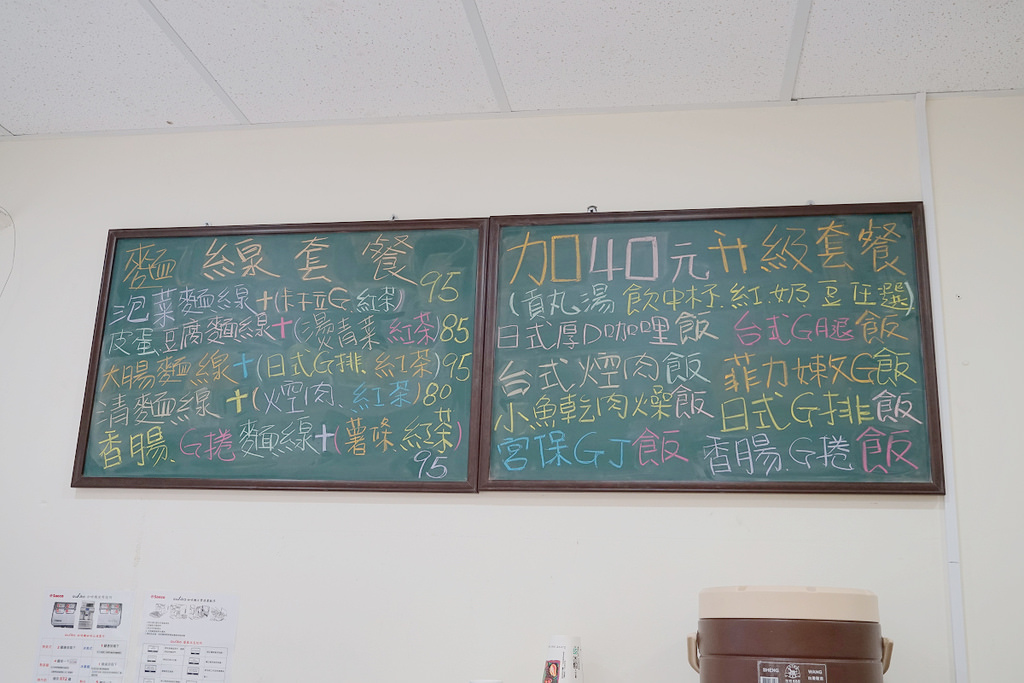 麵線套餐
泡菜麵線+(卡拉G、紅茶) 95
皮蛋豆腐麵線+(燙青菜 紅茶)85
大腸麵線+(日式G排、紅茶)95
清麵線+(煙肉、紅茶)80
香腸、G捲麵線+(薯條、紅茶)
95
加40元升級套餐
(貢丸湯 飲中杯.紅.奶.豆任選)
日式厚D咖哩飯 台式G腿飯
台式煙肉飯 菲力嫩G飯
小魚乾肉燥飯 日式G排飯
宮保GJ飯 香腸.G捲飯
SHENG WANG